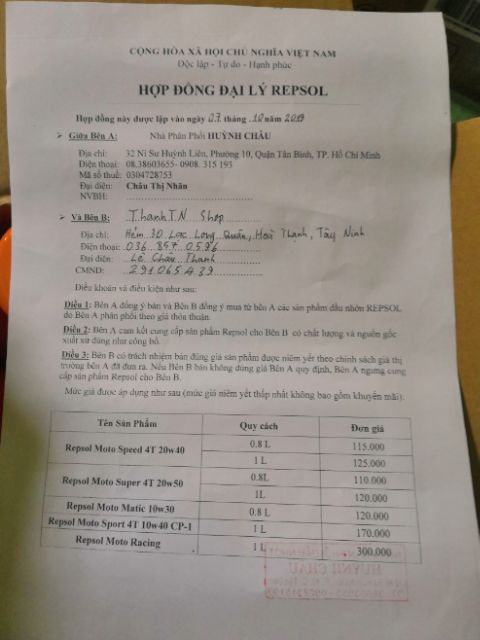 CỘNG HÒA XÃ HỘI CHỦ NGHĨA VIỆT NAM
Độc lập - Tự do - Hạnh phúc
HỢP ĐỒNG ĐẠI LÝ REPSOL
Hợp đồng này được lập vào ngày 07 tháng 10 năm 2019
➤ Giữa Bên A: Nhà Phân Phối HUỲNH CHÂU
Địa chỉ: 32 Ni Sư Huỳnh Liên, Phường 10, Quận Tân Bình, TP. Hồ Chí Minh
Điện thoại: 08.38603655- 0908. 315 193
Mã số thuế: 0304728753
Đại diện: Châu Thị Nhân
NVBH:
➤ Và Bên B: ThanhTN Shop
Địa chỉ: Hẻm 30 Lạc Long Quân, Hoà Thành, Tây Ninh
Điện thoại: 036 857 0596
Đại diện: Lê Châu Thanh
CMND: 291065439
Điều khoản và điều kiện như sau:
Điều 1: Bên A đồng ý bán và Bên B đồng ý mua từ bên A các sản phẩm dầu nhờn REPSOL
do Bên A phân phối theo giá thỏa thuận.
Điều 2: Bên A cam kết cung cấp sản phẩm Repsol cho Bên B có chất lượng và nguồn gốc
xuất xứ đúng như công bố.
Điều 3: Bên B có trách nhiệm bán đúng giá sản phẩm được niêm yết theo chính sách giá thị
trường bên A đã đưa ra. Nếu Bên B bán không đúng giá Bên A quy định, Bên A ngưng cung
cấp sản phẩm Repsol cho Bên B.
Mức giá được áp dụng như sau (mức giá niêm yết thấp nhất không bao gồm khuyến mãi):
Tên Sản Phẩm Quy cách Đơn giá
Repsol Moto Speed 4T 20w40 0.8 L 115.000
1 L 125.000
Repsol Moto Super 4T 20w50 0.8L 110.000
1L 120.000
Repsol Moto Matic 10w30 0.8 L 120.000
Repsol Moto Sport 4T 10w40 CP-1 1 L 170.000
Repsol Moto Racing 1 L 300.000
HUỲNH CHÂU